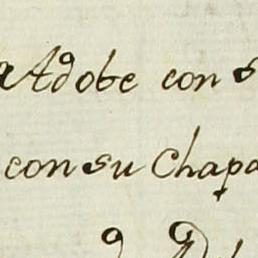 Adobe con s
con su Chapa